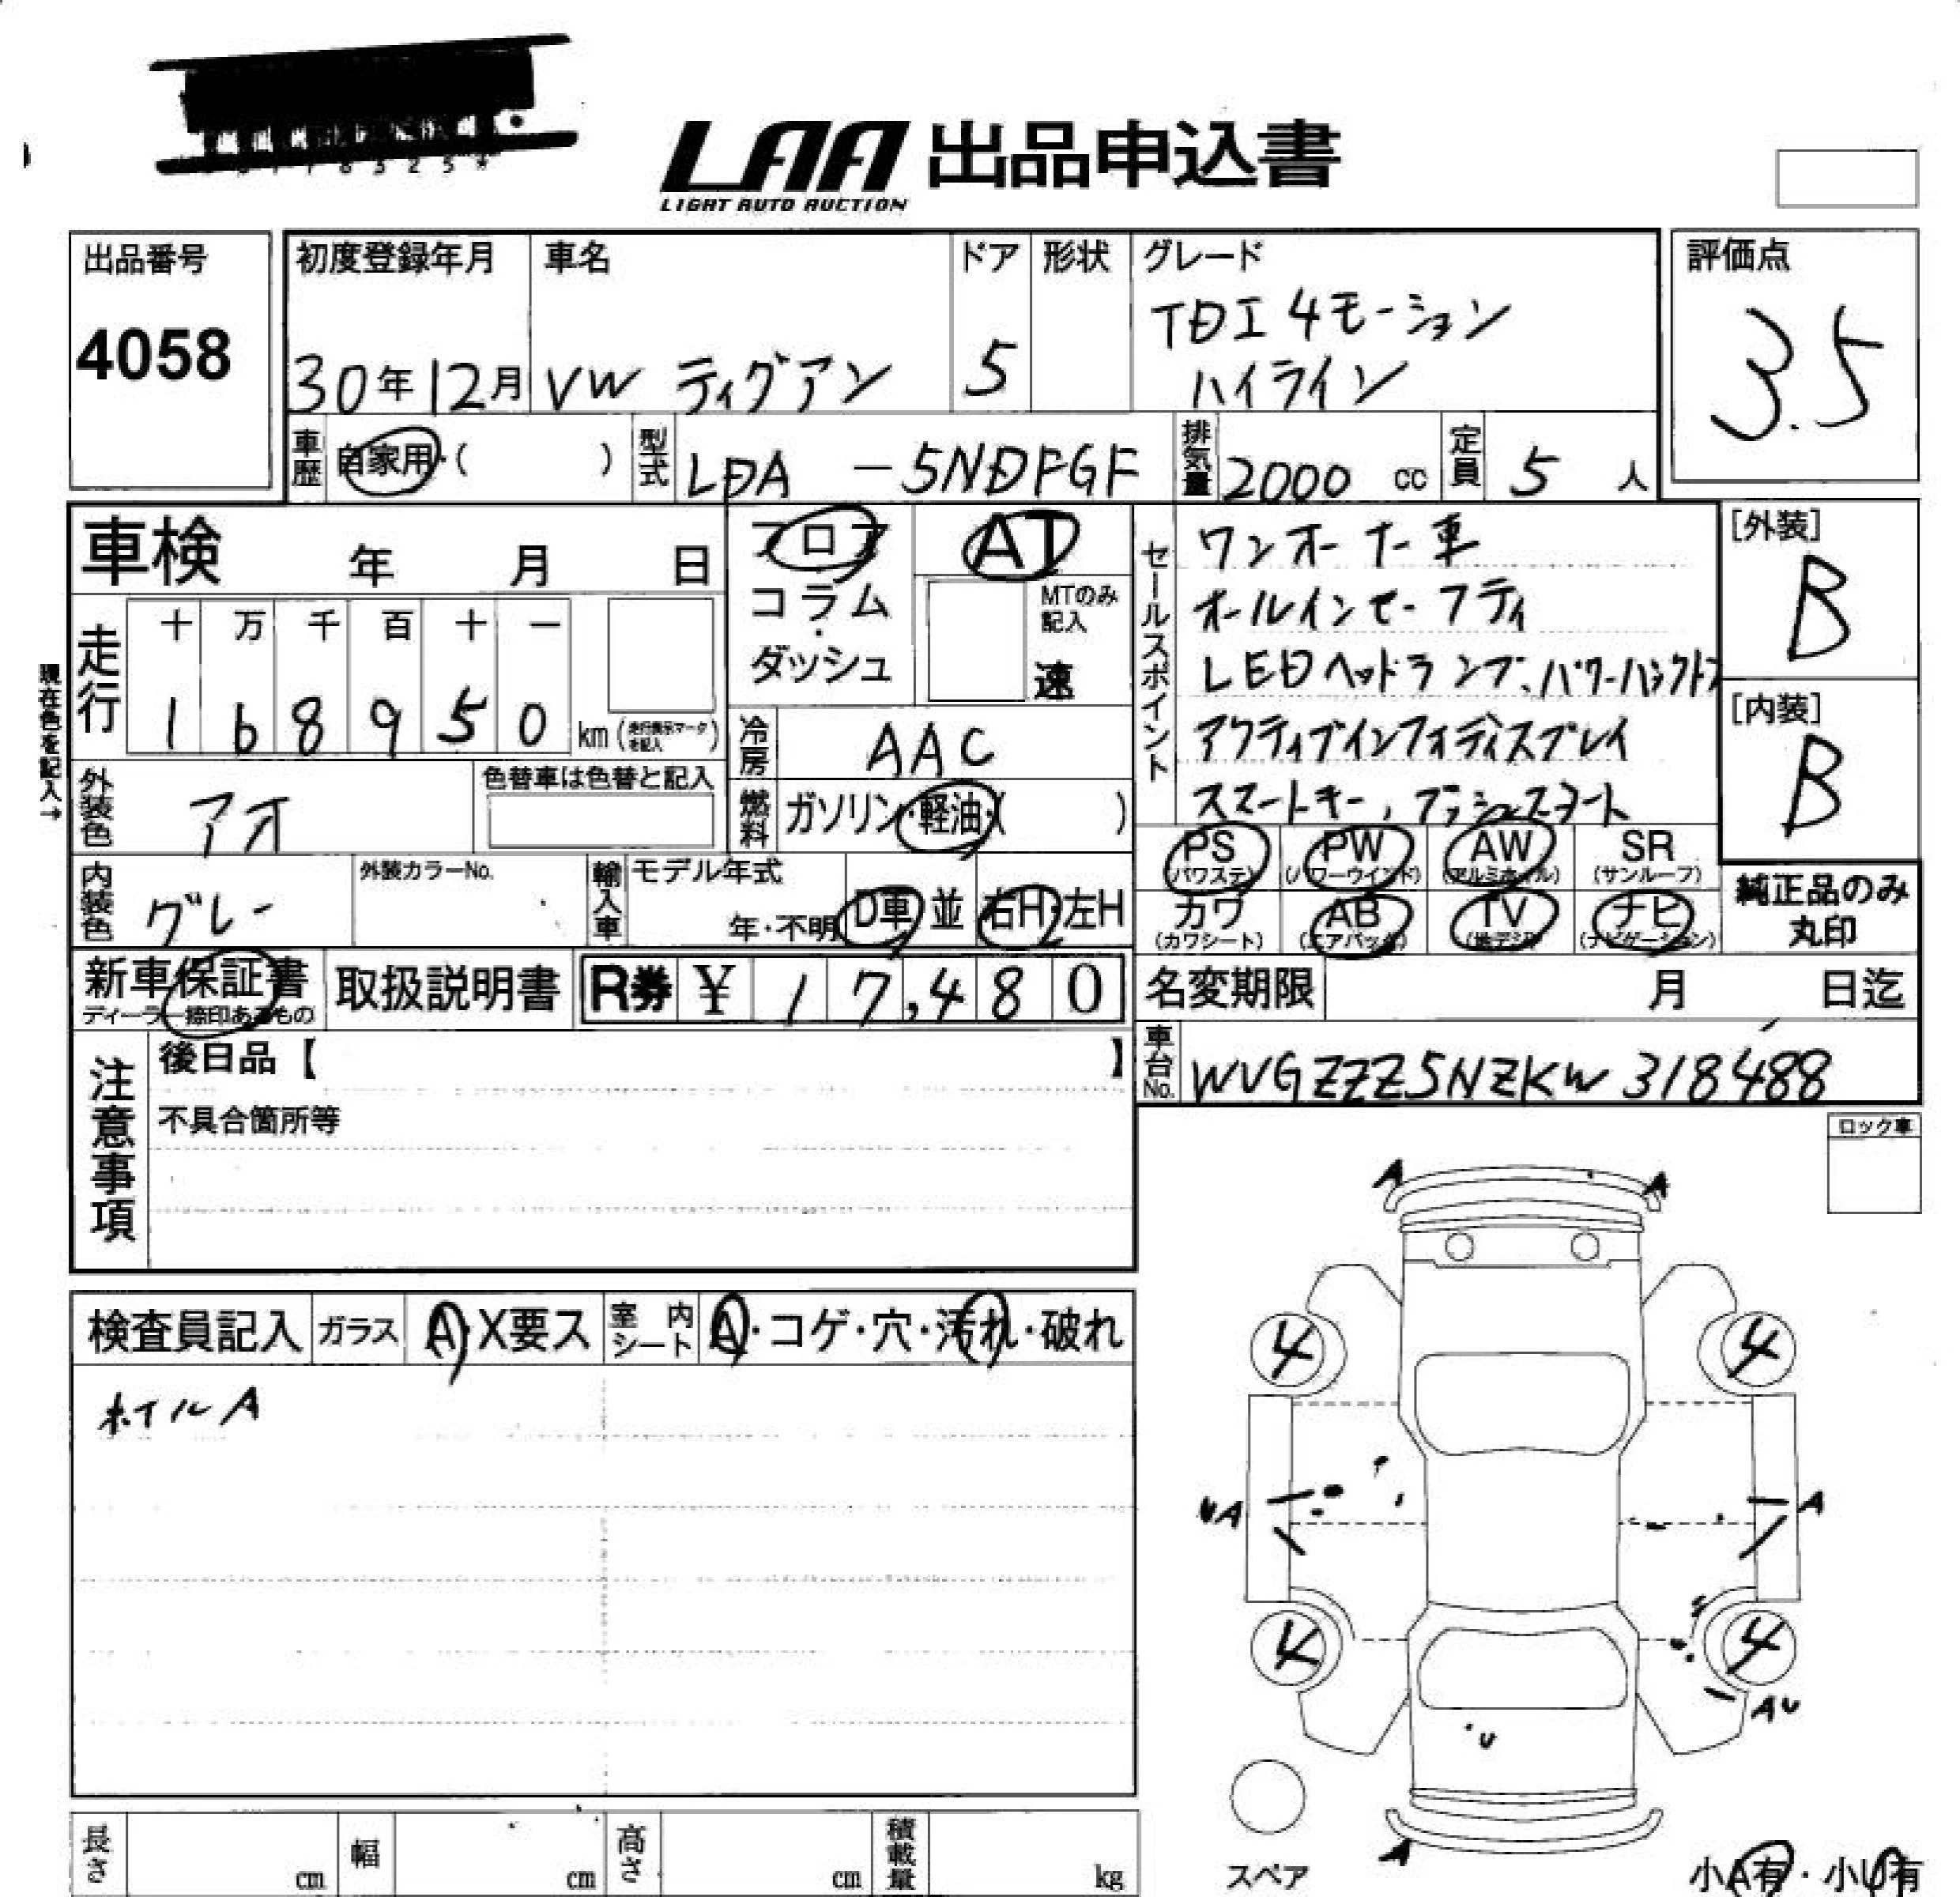 LAA 出品申込書
LIGHT AUTO AUCTION
出品番号
4058
初度登録年月
30年12月
車名
VW ティグアン
ドア
5
形状
グレード
TDI 4モーション
ハイライン
評価点
3.5
車歴 自家用・( )
型式 LDA -5NDFGF
排気量 2000 cc
定員 5 人
車検 年 月 日
走行
十 万 千 百 十 一
1 6 8 9 5 0 km (走行表示マークを記入)
現在色を記入→
外装色 アオ
色替車は色替と記入
内装色 グレー
外装カラーNo.
フロア
コラム
・
ダッシュ
AT
MTのみ
記入
速
冷房 AAC
燃料 ガソリン・軽油・( )
輸入車 モデル年式
年・不明 D車 並 右H・左H
セールスポイント
ワンオーナー車
オールインセーフティ
LEDヘッドランプ、パワーハッチ
アクティブインフォディスプレイ
スマートキー, プッシュスタート
[外装]
B
[内装]
B
PS (パワステ) PW (パワーウインド) AW (アルミホイル) SR (サンルーフ)
カワ (カワシート) AB (エアバック) TV (地デジ) ナビ (ナビゲーション)
純正品のみ
丸印
新車保証書
ディーラー捺印あるもの
取扱説明書
R券 ¥ 17,480
名変期限 月 日迄
車台No. WVGZZZ5NZKW318488
注意事項
後日品【 】
不具合箇所等
ロック車
検査員記入 ガラス A・X要ス 室内シート A・コゲ・穴・汚れ・破れ
ホイルA
A A
4 4
UA A
4 4
AU
U
A
スペア
小A有・小U有
長さ cm 幅 cm 高さ cm 積載量 kg